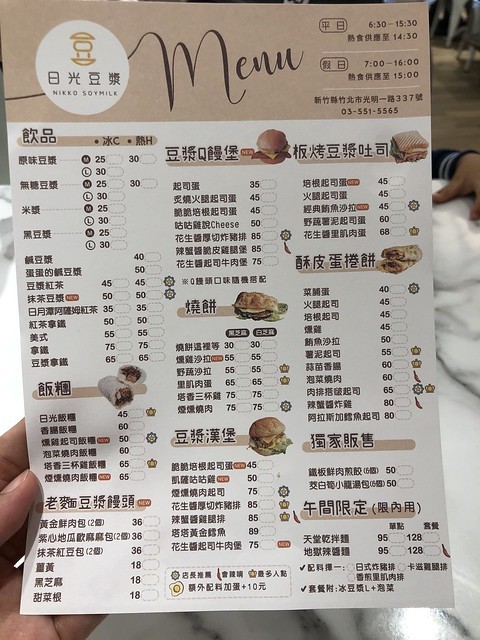 豆
日光豆漿
NIKKO SOYMILK
Menu
平日 6:30-15:30
熱食供應至 14:30
假日 7:00-16:00
熱食供應至 15:00
新竹縣竹北市光明一路337號
03-551-5565
飲品 •冰C •熱H
原味豆漿 M 25 30
L 30
無糖豆漿 M 25 30
L 30
米漿 M 25
L 30
黑豆漿 M 25
L 30
鹹豆漿 40
蛋蛋的鹹豆漿 50
豆漿紅茶 45 45
抹茶豆漿 NEW 50 50
日月潭阿薩姆紅茶 35 35
紅茶拿鐵 50 50
美式 55 55
拿鐵 75 75
豆漿拿鐵 65 65
飯糰
日光飯糰 45
香腸飯糰 60
燻雞起司飯糰 NEW 50
泡菜燒肉飯糰 60
塔香三杯雞飯糰 65
煙燻燒肉飯糰 NEW 65
老麵豆漿饅頭 NEW
黃金鮮肉包(2個) 36
紫心地瓜歐麻麻包(2個) 36
抹茶紅豆包(2個) 36
薑黃 18
黑芝麻 18
甜菜根 18
豆漿Q饅堡 NEW
起司蛋 35
炙燒火腿起司蛋 45
脆脆培根起司蛋 45
咕咕雞說Cheese 50
花生醬厚切炸豬排 85
辣蟹醬脆皮雞腿堡 85
花生醬起司牛肉堡 75
※Q饅頭口味隨機搭配
燒餅
黑芝麻 白芝麻
燒餅這裡等 30 30
燻雞沙拉 NEW 55 55
野蔬沙拉 55 55
里肌肉蛋 65 65
塔香三杯雞 75 75
煙燻燒肉 75 75
豆漿漢堡
脆脆培根起司蛋 NEW 45
凱薩咕咕雞 NEW 50
煙燻燒肉起司 75
花生醬厚切炸豬排 85
辣蟹醬雞腿排 85
塔塔黃金鱈魚 89
花生醬起司牛肉堡 NEW 75
店長推薦 會辣唷 最多人點
額外配料加蛋+10元
板烤豆漿吐司
培根起司蛋 NEW 45
火腿起司蛋 45
經典鮪魚沙拉 NEW 45
野蔬薯泥起司蛋 60
花生起司里肌肉蛋 68
酥皮蛋捲餅
菜脯蛋 40
火腿起司 45
培根起司 45
燻雞 45
鮪魚沙拉 50
薯泥起司 55
蒜苗香腸 60
泡菜燒肉 60
肉排搭啵起司 65
辣蟹醬炸雞 80
阿拉斯加鱈魚起司 80
獨家販售
鐵板鮮肉煎餃(6個) 50
茭白筍小籠湯包(6個) 50
午間限定 (限內用)
單點 套餐
天堂乾拌麵 95 128
地獄辣醬麵 95 128
✓配料擇一: 日式炸豬排 卡滋雞腿排
香煎里肌肉排
✓套餐附:冰豆漿L+泡菜